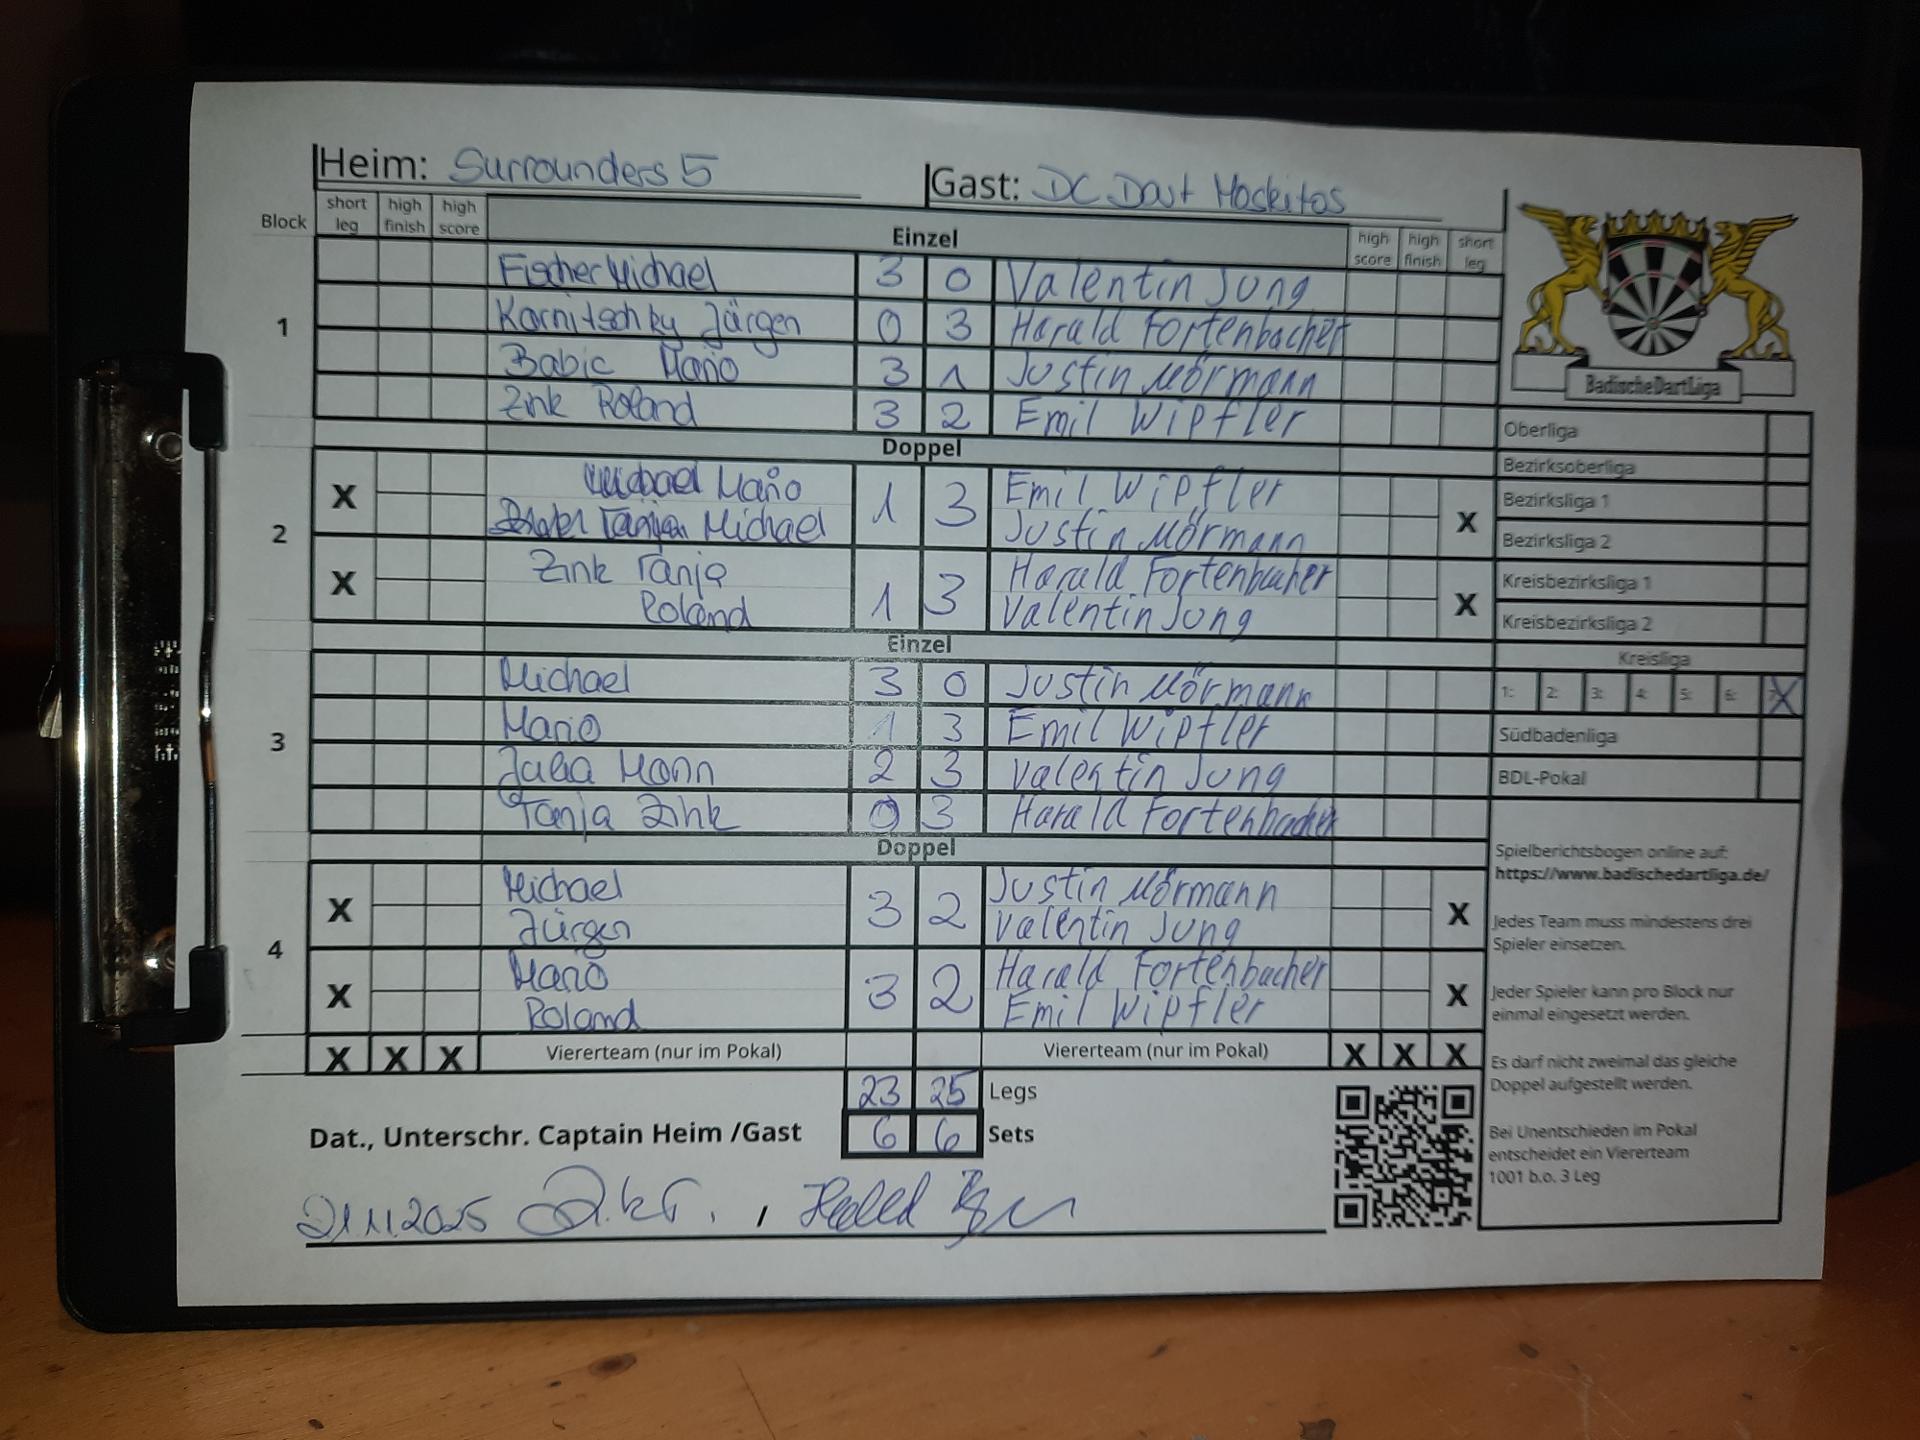 Heim: Surrounders 5 Gast: DC Dart Moskitos
Block short leg high finish high score Einzel high score high finish short leg
Fischer Michael 3 0 Valentin Jung
1 Kornitschky Jürgen 0 3 Harald Fortenbacher
Babic Mario 3 1 Justin Mörmann
Zink Roland 3 2 Emil Wipfler
Doppel
X Mario 1 3 Emil Wipfler
2 Michael Justin Mörmann X
X Zink Tanja 1 3 Harald Fortenbacher
Roland Valentin Jung X
Einzel
Michael 3 0 Justin Mörmann
3 Mario 1 3 Emil Wipfler
Julia Mann 2 3 Valentin Jung
Tanja Zink 0 3 Harald Fortenbacher
Doppel
X Michael 3 2 Justin Mörmann X
Jürgen Valentin Jung
4
X Mario 3 2 Harald Fortenbacher X
Roland Emil Wipfler
X X X Viererteam (nur im Pokal) Viererteam (nur im Pokal) X X X
23 25 Legs
Dat., Unterschr. Captain Heim /Gast 6 6 Sets
21.11.2025
BadischeDartLiga
Oberliga
Bezirksoberliga
Bezirksliga 1
Bezirksliga 2
Kreisbezirksliga 1
Kreisbezirksliga 2
Kreisliga
1: 2: 3: 4: 5: 6: X
Südbadenliga
BDL-Pokal
Spielberichtsbogen online auf:
https://www.badischedartliga.de/
Jedes Team muss mindestens drei
Spieler einsetzen.
Jeder Spieler kann pro Block nur
einmal eingesetzt werden.
Es darf nicht zweimal das gleiche
Doppel aufgestellt werden.
Bei Unentschieden im Pokal
entscheidet ein Viererteam
1001 b.o. 3 Leg